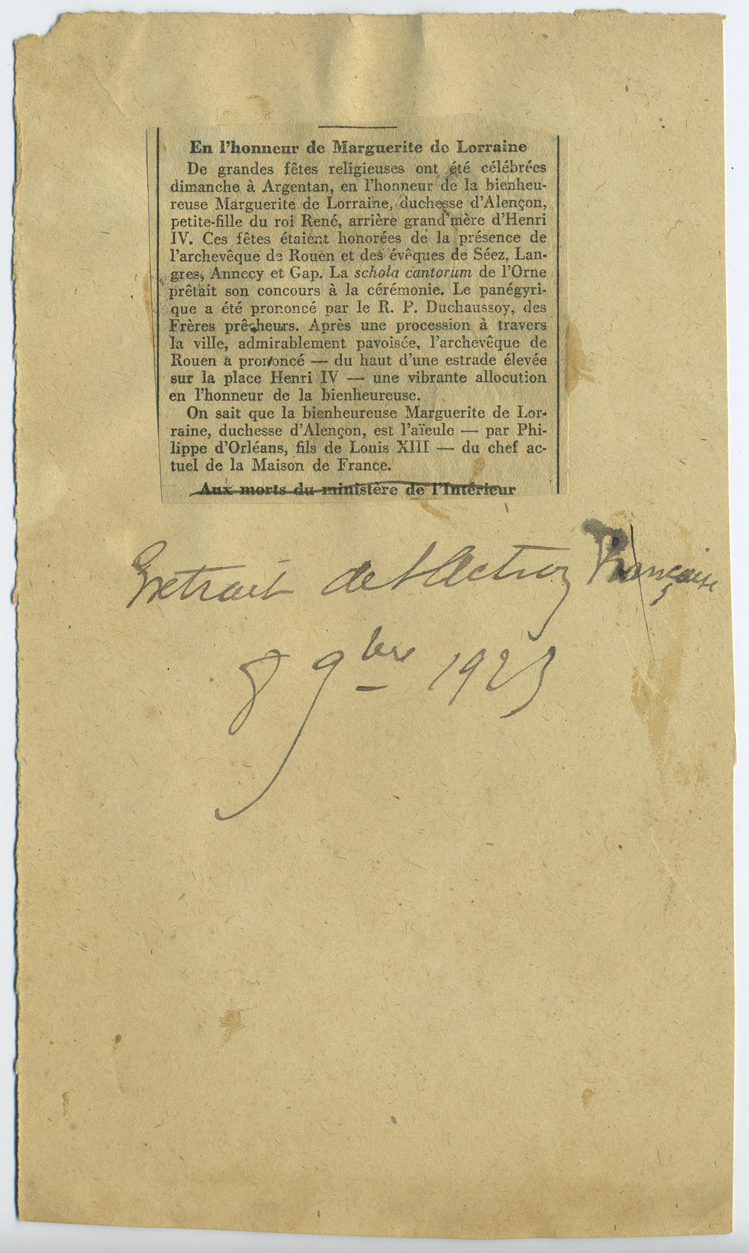 En l'honneur de Marguerite de Lorraine
De grandes fêtes religieuses ont été célébrées
dimanche à Argentan, en l'honneur de la bienheu-
reuse Marguerite de Lorraine, duchesse d'Alençon,
petite-fille du roi René, arrière grand'mère d'Henri
IV. Ces fêtes étaient honorées de la présence de
l'archevêque de Rouen et des évêques de Séez, Lan-
gres, Annecy et Gap. La schola cantorum de l'Orne
prêtait son concours à la cérémonie. Le panégyri-
que a été prononcé par le R. P. Duchaussoy, des
Frères prêcheurs. Après une procession à travers
la ville, admirablement pavoisée, l'archevêque de
Rouen a prononcé — du haut d'une estrade élevée
sur la place Henri IV — une vibrante allocution
en l'honneur de la bienheureuse.
On sait que la bienheureuse Marguerite de Lor-
raine, duchesse d'Alençon, est l'aïeule — par Phi-
lippe d'Orléans, fils de Louis XIII — du chef ac-
tuel de la Maison de France.
Aux morts du ministère de l'Intérieur
Extrait de l'Action Française
8 9bre 1923